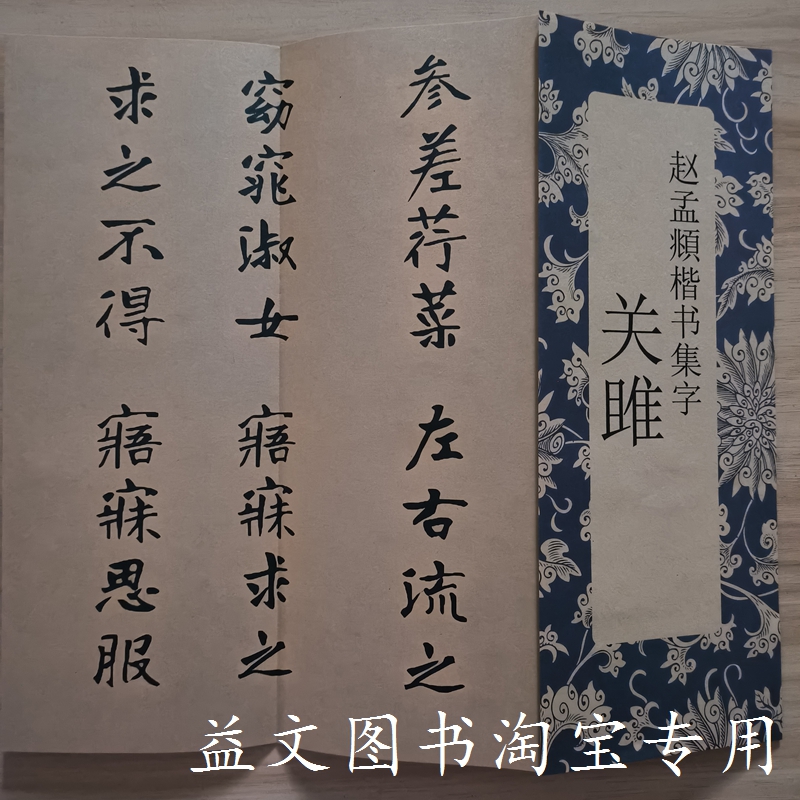 赵孟頫楷书集字
关雎
参差荇菜 左右流之
窈窕淑女 寤寐求之
求之不得 寤寐思服
益文图书淘宝专用